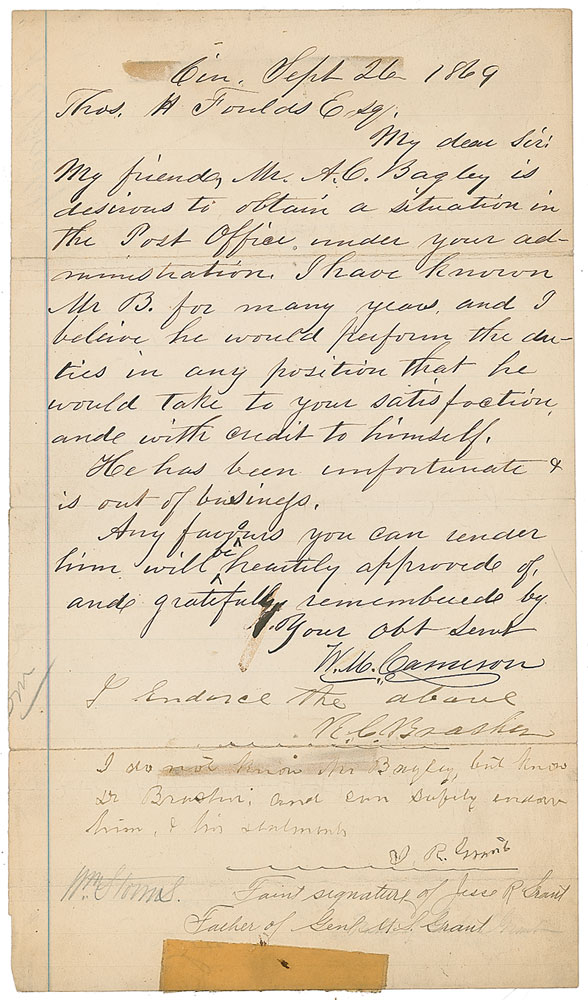 Cin. Sept 26 1869
Thos. H Foulds Esq.
My dear Sir:
My friend, Mr. A.C. Bagley is
desirous to obtain a situation in
the Post Office under your ad-
ministration. I have known
Mr B. for many years, and I
beleive he would perform the du-
ties in any position that he
would take to your satisfaction,
and with credit to himself.
He has been unfortunate &
is out of business.
Any favours you can render
him will be heartily approved of,
and gratefully remembered by
Your obt servt
W.M. Cameron
I Endorce the above
R.C. Brasher
I do not know Mr Bagley, but know
Dr Brasher; and can safely endorse
him, & his statements
J R. Grant
Wm
Faint signature of Jesse R Grant
Father of Genl U.S. Grant